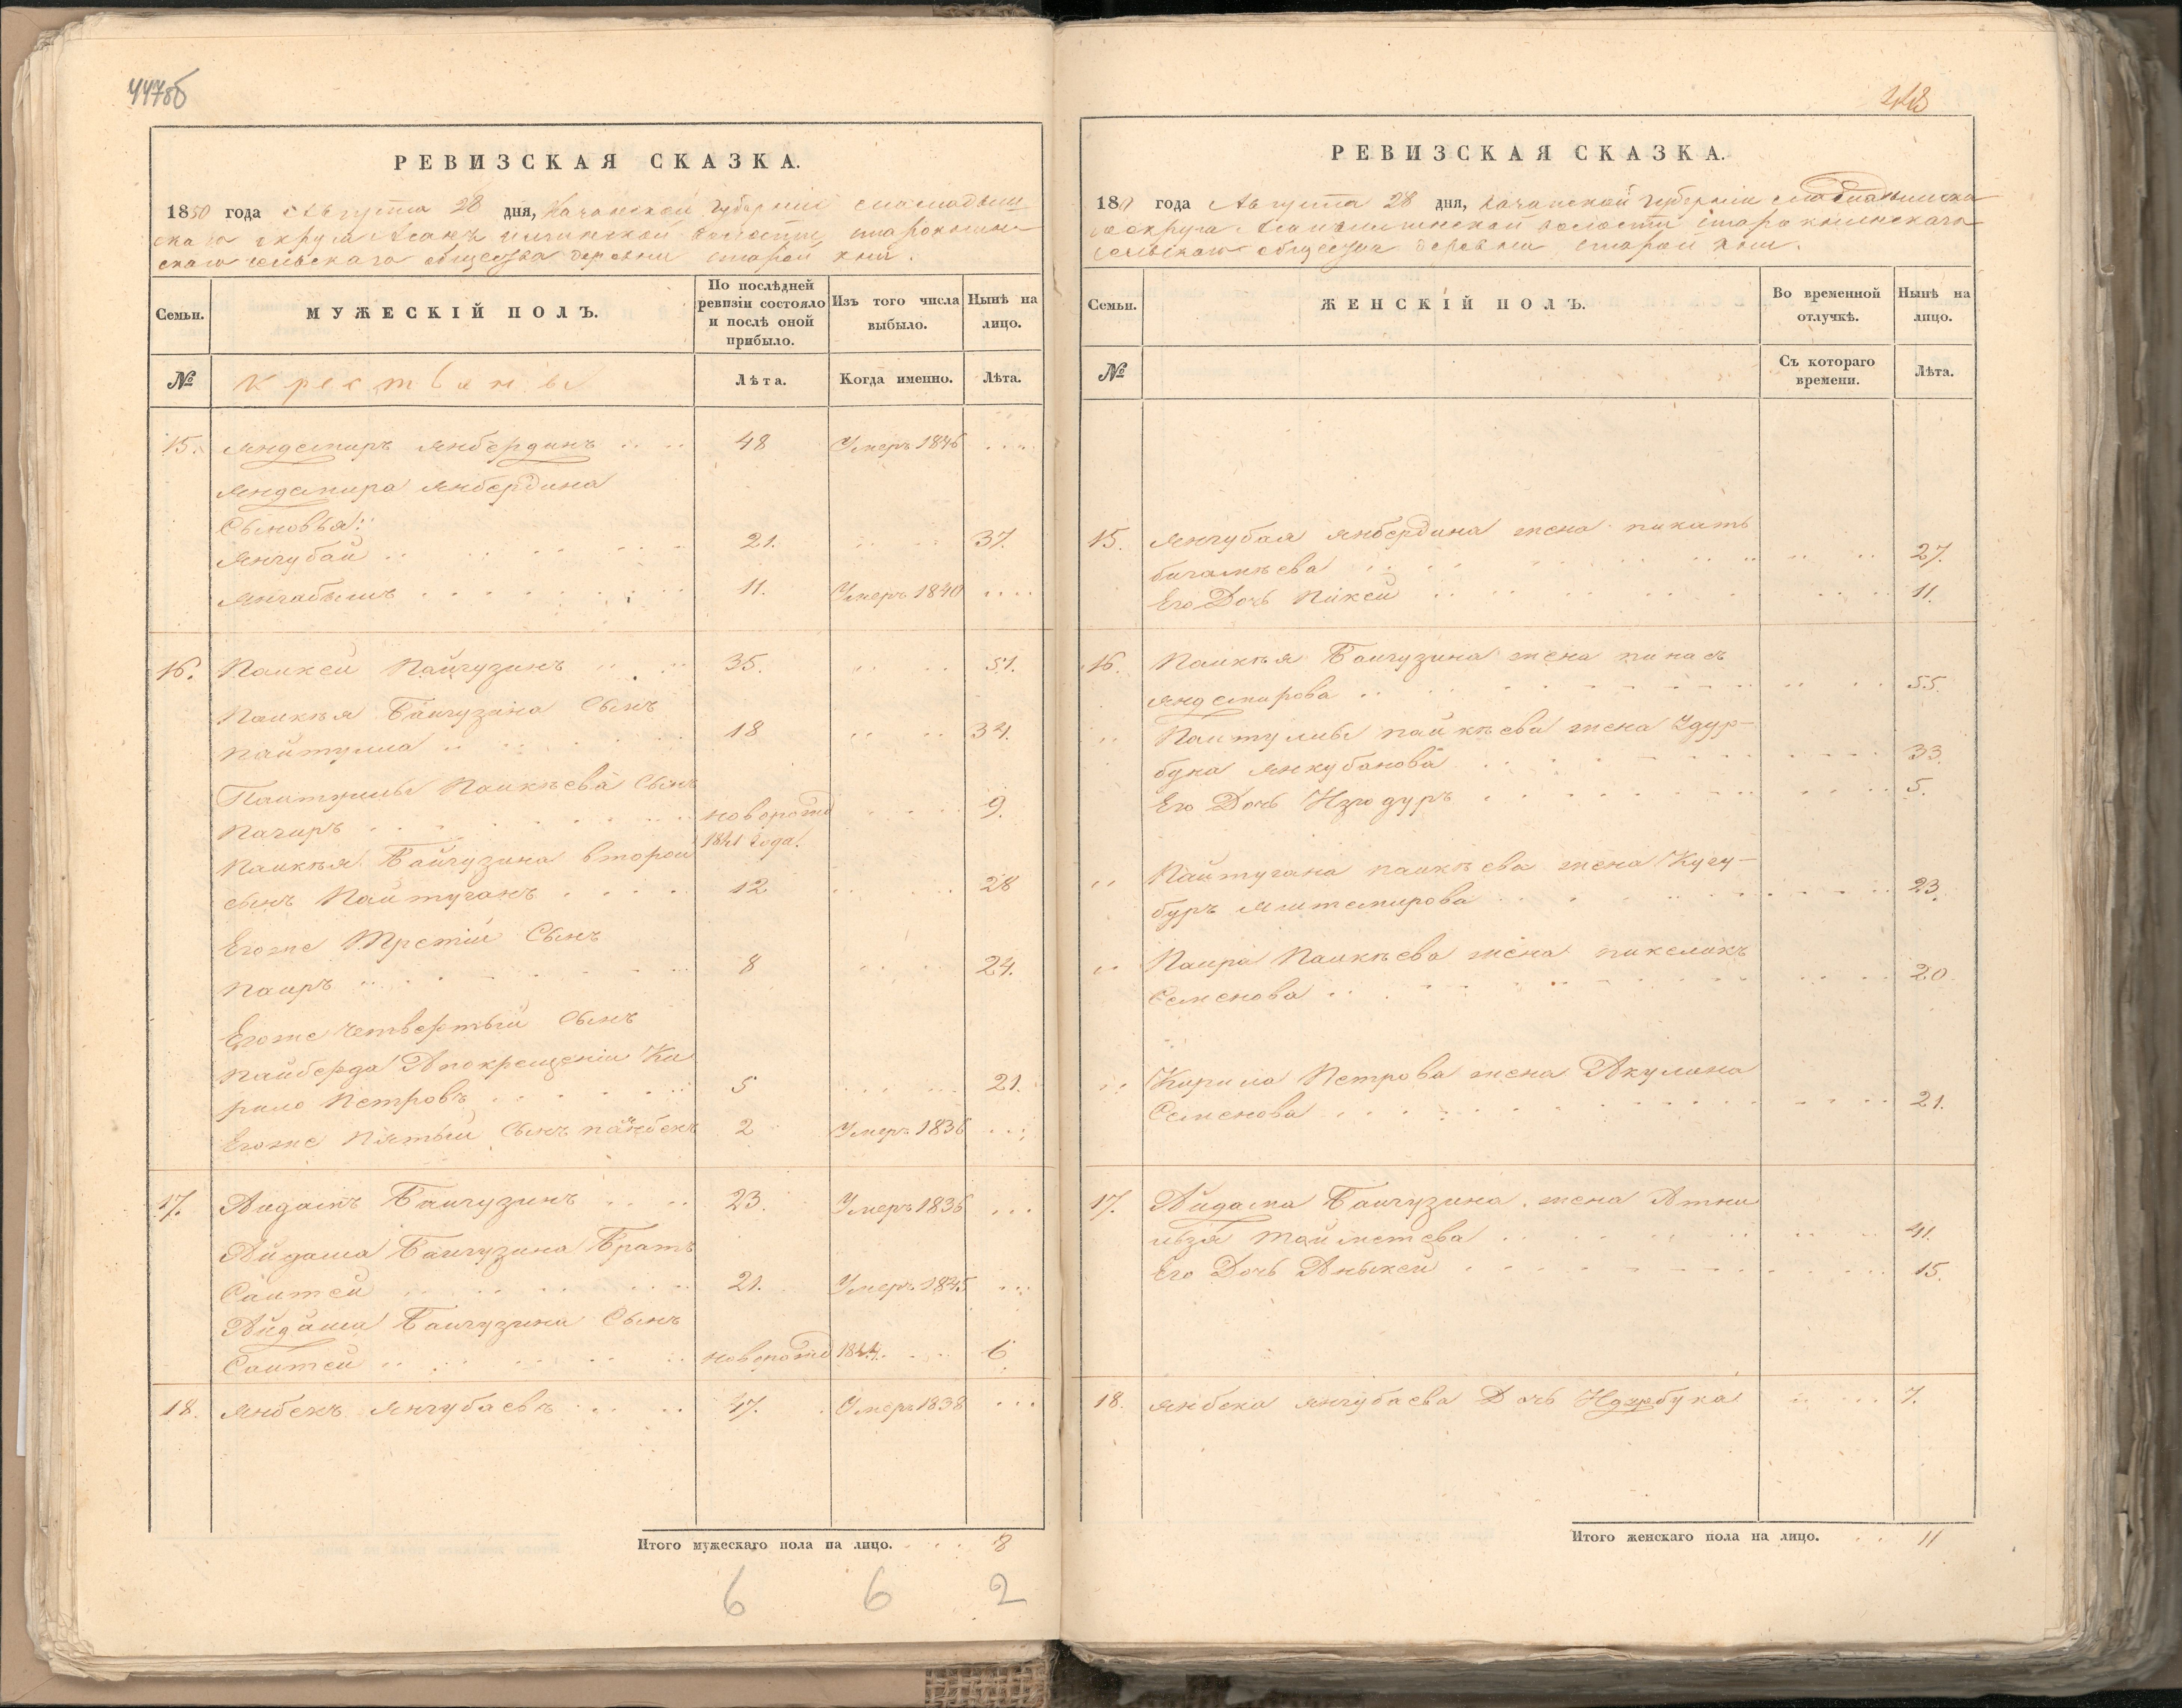 447об
448
РЕВИЗСКАЯ СКАЗКА.
1850 года Августа 28 дня, Казанской губерніи
скаго округа волости
скаго сельскаго общества деревни старой кни.
Семьи.
МУЖЕСКІЙ ПОЛЪ.
По послѣдней
ревизіи состояло
и послѣ оной
прибыло.
Изъ того числа
выбыло.
Нынѣ на
лицо.
№
крестьяны
Лѣта.
Когда именно.
Лѣта.
15. Яндемиръ Янбердинъ 48 Умеръ 1846
Яндемира Янбердина
Сыновья:
Янгубай 21. 37.
Янгабышъ 11. Умеръ 1840
16. Паикей Пайгузинъ 35. 51.
Паикѣя Байгузина Сынъ
Пайтулла 18 34.
Паитуллы Паикѣева Сынъ
Пагиръ новорожд 9.
1841 года.
Паикѣя Байгузина второй
сынъ Паитуганъ 12 28
Егоже Третій Сынъ
Паиръ 8 24.
Егоже Четвертый Сынъ
Пайберда А покрещеніи Ки
рило Петровъ 5 21.
Егоже Пятый Сынъ 2 Умеръ 1836
17. Байгузинъ 23. Умеръ 1836
Байгузина Братъ
Саитей 21. Умеръ 1845
Байгузина Сынъ
Саитей новорожд 1844. 6
18. Янбекъ Янгубаевъ 47. Умеръ 1838
Итого мужескаго пола на лицо. 8
6 6 2
РЕВИЗСКАЯ СКАЗКА.
года Августа 28 дня, Казанской губерніи
округа волости старокнинскаго
сельскаго общества деревни старой кни.
Семьи.
ЖЕНСКІЙ ПОЛЪ.
Во временной
отлучкѣ.
Нынѣ на
лицо.
№
Съ котораго
времени.
Лѣта.
15. Янгубая Янбердина жена
27.
Его Дочь Пикей 11.
16. Паикѣя Байгузина жена пинасъ
Яндемирова 55.
Паитуллы пайкѣева жена Удур-
бука Янкубанова 33.
Его Дочь 5.
Пайтугана паикѣева жена Кугу-
буръ 23.
Паира Паикѣева жена
Семенова 20
Кирила Петрова жена Акулина
Семенова 21.
17. Байгузина жена
41.
Его Дочь Аныкей 15.
18. Янбека Янгубаева Дочь 7.
Итого женскаго пола на лицо. 11